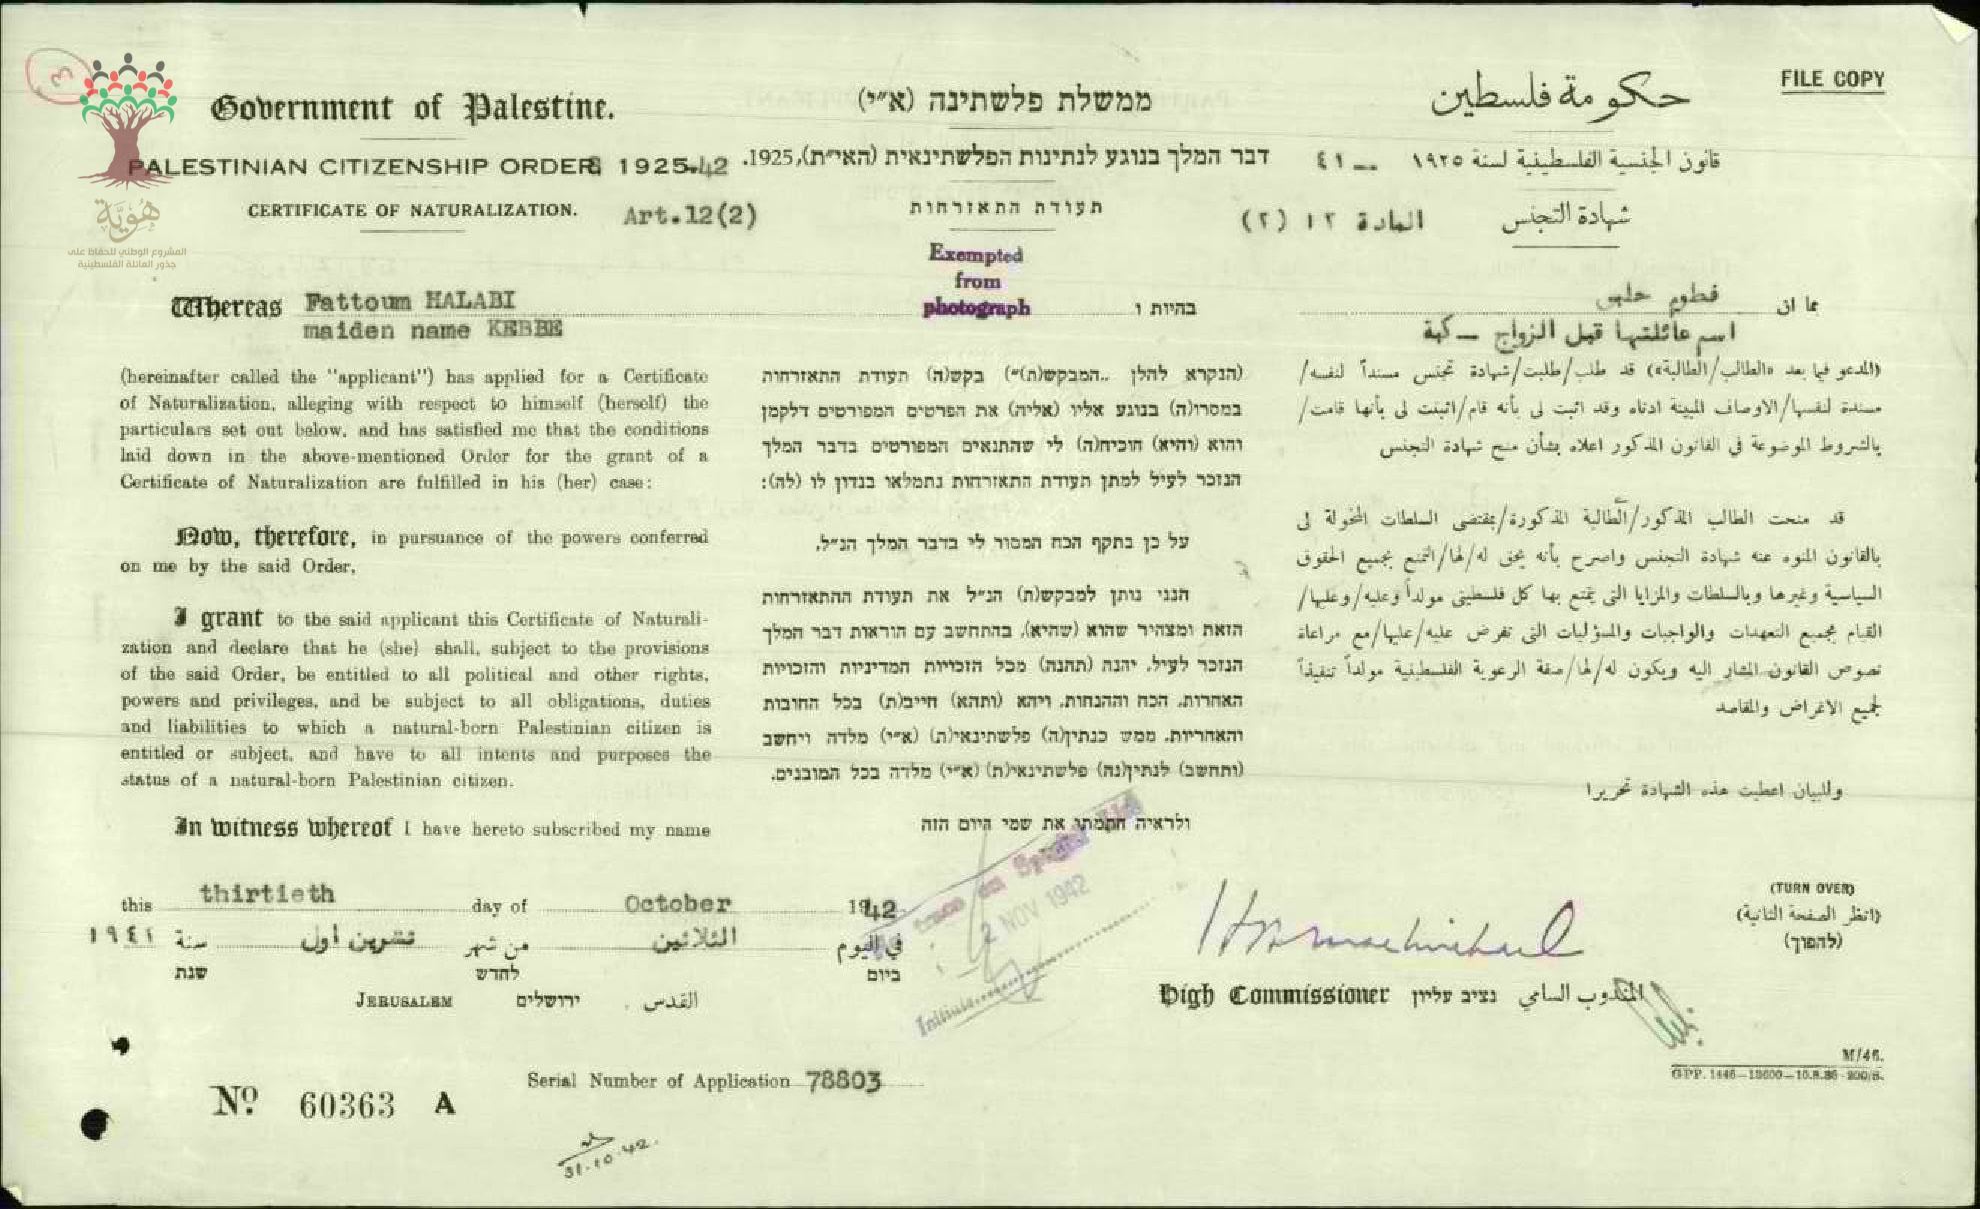 FILE COPY
Government of Palestine.
ממשלת פלשתינה (א״י)
حكومة فلسطين
PALESTINIAN CITIZENSHIP ORDERS 1925-42
דבר המלך בנוגע לנתינות הפלשתינאית (האי״ת), 1925.
قانون الجنسية الفلسطينية لسنة ١٩٢٥ — ٤١
CERTIFICATE OF NATURALIZATION. Art.12(2)
תעודת התאזרחות
شهادة التجنس المادة ١٢ (٢)
هُوِيَّة
المشروع الوطني للحفاظ على
جذور العائلة الفلسطينية
Exempted
from
photograph
Whereas Fattoum HALABI
maiden name KEBBE
בהיות ו
مما ان فطوم حلبي
اسم عائلتها قبل الزواج — كبة
(hereinafter called the "applicant") has applied for a Certificate
of Naturalization, alleging with respect to himself (herself) the
particulars set out below, and has satisfied me that the conditions
laid down in the above-mentioned Order for the grant of a
Certificate of Naturalization are fulfilled in his (her) case:
Now, therefore, in pursuance of the powers conferred
on me by the said Order,
I grant to the said applicant this Certificate of Naturali-
zation and declare that he (she) shall, subject to the provisions
of the said Order, be entitled to all political and other rights,
powers and privileges, and be subject to all obligations, duties
and liabilities to which a natural-born Palestinian citizen is
entitled or subject, and have to all intents and purposes the
status of a natural-born Palestinian citizen.
In witness whereof I have hereto subscribed my name
(הנקרא להלן ״המבקש(ת)״) בקש(ה) תעודת התאזרחות
במסרו(ה) בנוגע אליו (אליה) את הפרטים המפורטים דלקמן
והוא (והיא) הוכיח(ה) לי שהתנאים המפורטים בדבר המלך
הנזכר לעיל למתן תעודת התאזרחות נתמלאו בנדון לו (לה):
על כן בתקף הכח המסור לי בדבר המלך הנ״ל,
הנני נותן למבקש(ת) הנ״ל את תעודת ההתאזרחות
הזאת ומצהיר שהוא (שהיא), בהתחשב עם הוראות דבר המלך
הנזכר לעיל, יהנה (תהנה) מכל הזכויות המדיניות והזכויות
האחרות, הכח וההנחות, ויהא (ותהא) חייב(ת) בכל החובות
והאחריות, ממש כנתין(ה) פלשתינאי(ת) (א״י) מלדה ויחשב
(ותחשב) לנתין(נה) פלשתינאי(ת) (א״י) מלדה בכל המובנים.
ולראיה חתמתי את שמי היום הזה
(المدعو فيما بعد «الطالب/الطالبة») قد طلب/طلبت/شهادة تجنس مسنداً لنفسه/
مسندة لنفسها/الاوصاف المبينة ادناه وقد اثبت لي بأنه قام/اثبتت لي بأنها قامت/
بالشروط الموضوعة في القانون المذكور اعلاه بشأن منح شهادة التجنس
قد منحت الطالب المذكور/الطالبة المذكورة/بمقتضى السلطات المخولة لي
بالقانون المنوه عنه شهادة التجنس واصرح بأنه يحق له/لها/التمتع بجميع الحقوق
السياسية وغيرها وبالسلطات والمزايا التي يتمتع بها كل فلسطيني مولداً وعليه/وعليها/
القيام بجميع التعهدات والواجبات والمسؤليات التي تفرض عليه/عليها/مع مراعاة
نصوص القانون المشار اليه ويكون له/لها/صفة الرعوية الفلسطينية مولداً تنفيذاً
لجميع الاغراض والمقاصد
وللبيان اعطيت هذه الشهادة تحريرا
this thirtieth day of October 1942
في اليوم الثلاثين من شهر تشرين اول سنة ١٩٤٢
ביום לחדש שנת
JERUSALEM ירושלים القدس
2 NOV 1942
Initials
(TURN OVER)
(انظر الصفحة الثانية)
(להפוך)
High Commissioner נציב עליון المندوب السامي
M/46.
GPP. 1446—13600—10.8.36—200/S.
Serial Number of Application 78803
No. 60363 A
31-10-42.